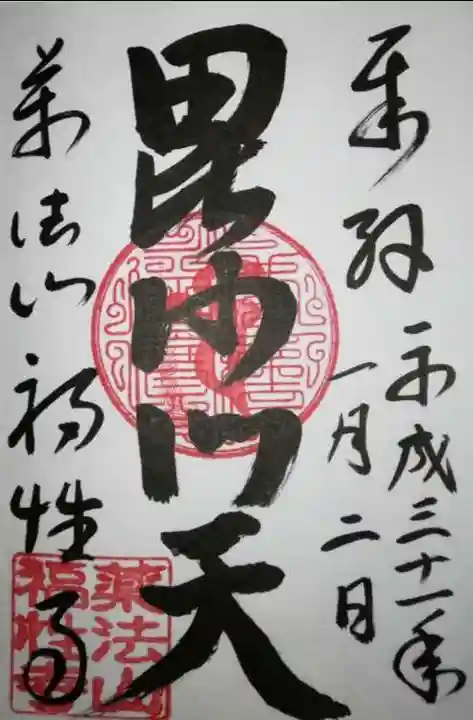 奉拜
平成三十一年
一月二日
毘沙門天
薬法山福性寺
薬法山
福性寺